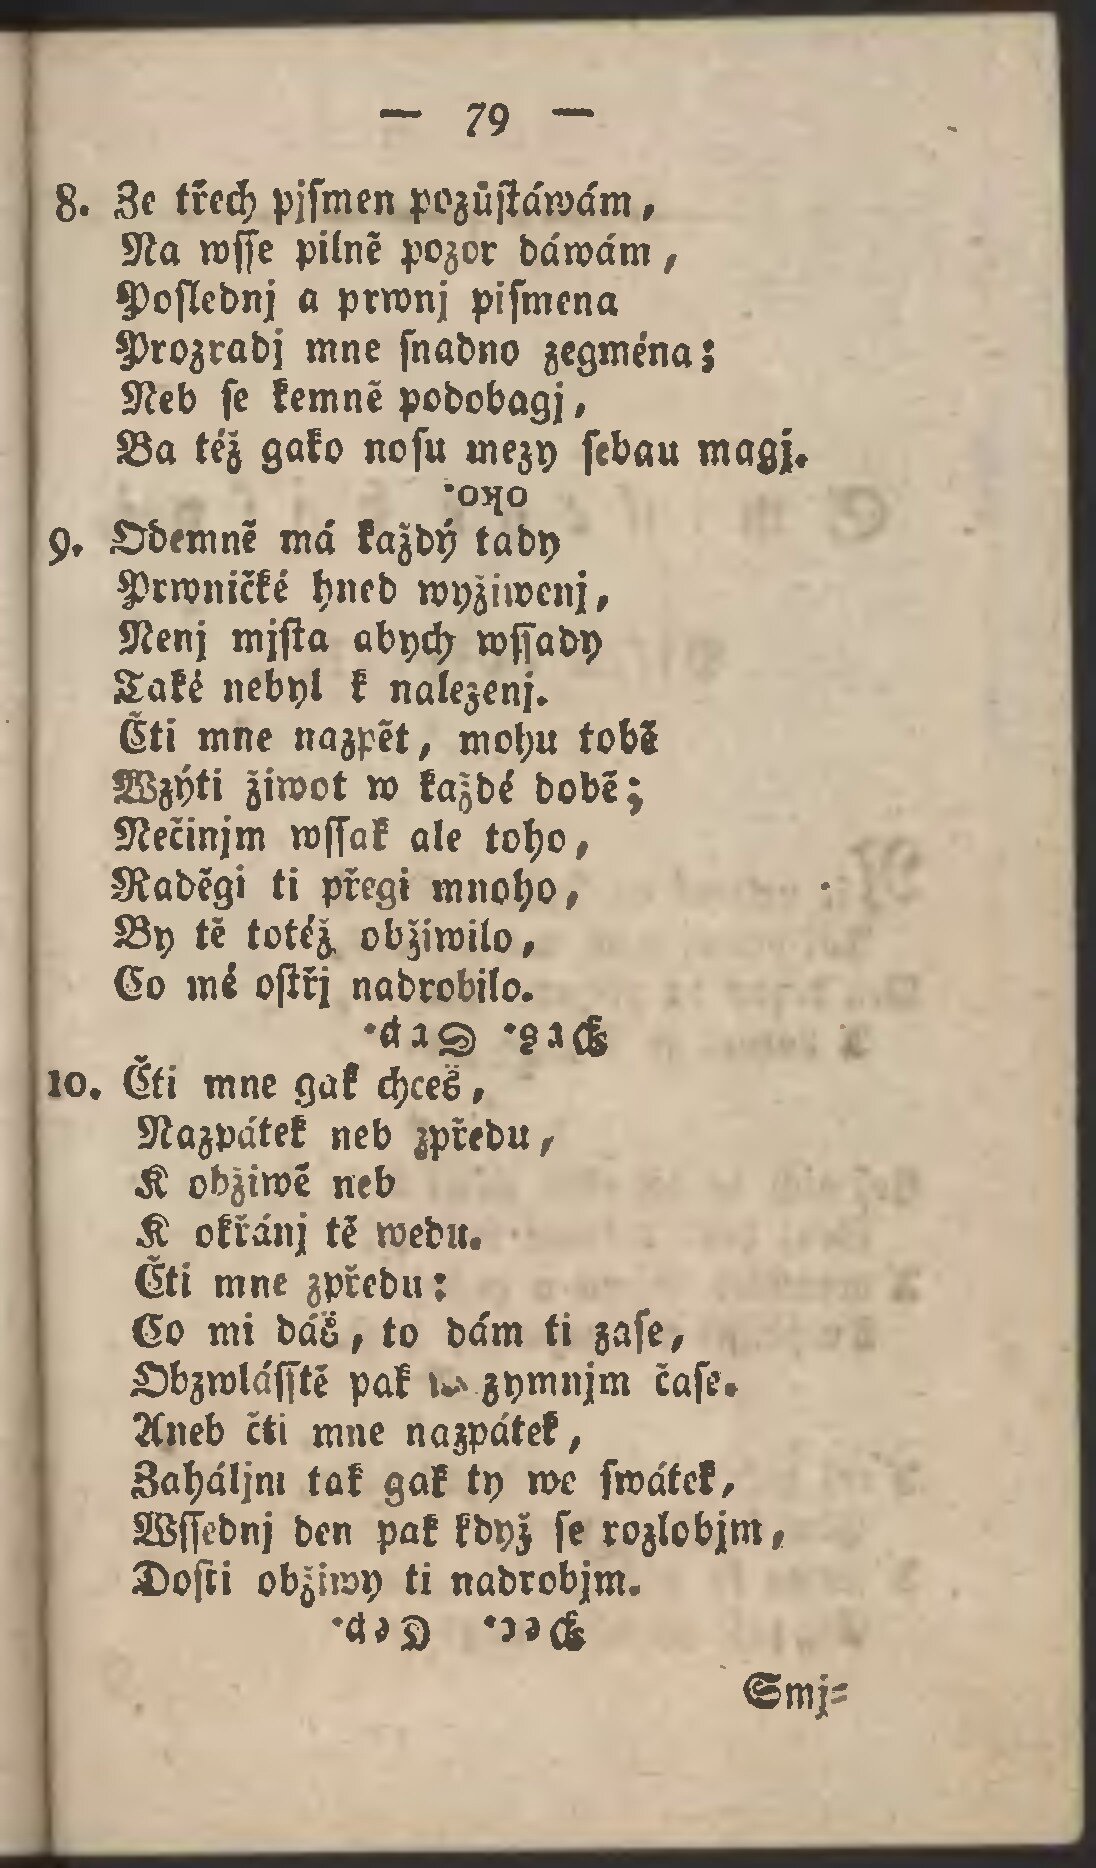 — 79 —
8. Ze třech pjſmen pozůſtáwám,
Na wſſe pilně pozor dáwám,
Poſlednj a prwnj piſmena
Prozradj mne ſnadno zegména;
Neb ſe kemně podobagj,
Ba též gako noſu mezy ſebau magj.
oko.
9. Odemně má každý tady
Prwničké hned wyžiwenj,
Nenj mjſta abych wſſady
Také nebyl k nalezenj.
Čti mne nazpět, mohu tobě
Wzýti žiwot w každé době;
Nečinjm wſſak ale toho,
Raděgi ti přegi mnoho,
By tě totéž obžiwilo,
Co mé oſtřj nadrobilo.
Prs. Srp.
10. Čti mne gak chceš,
Nazpátek neb zpředu,
K obžiwě neb
K okřánj tě wedu.
Čti mne zpředu:
Co mi dáš, to dám ti zaſe,
Obzwláſſtě pak w zymnjm čaſe.
Aneb čti mne nazpátek,
Zaháljm tak gak ty we ſwátek,
Wſſednj den pak když ſe rozlobjm,
Doſti obžiwy ti nadrobjm.
Pec. Cep.
Smj=